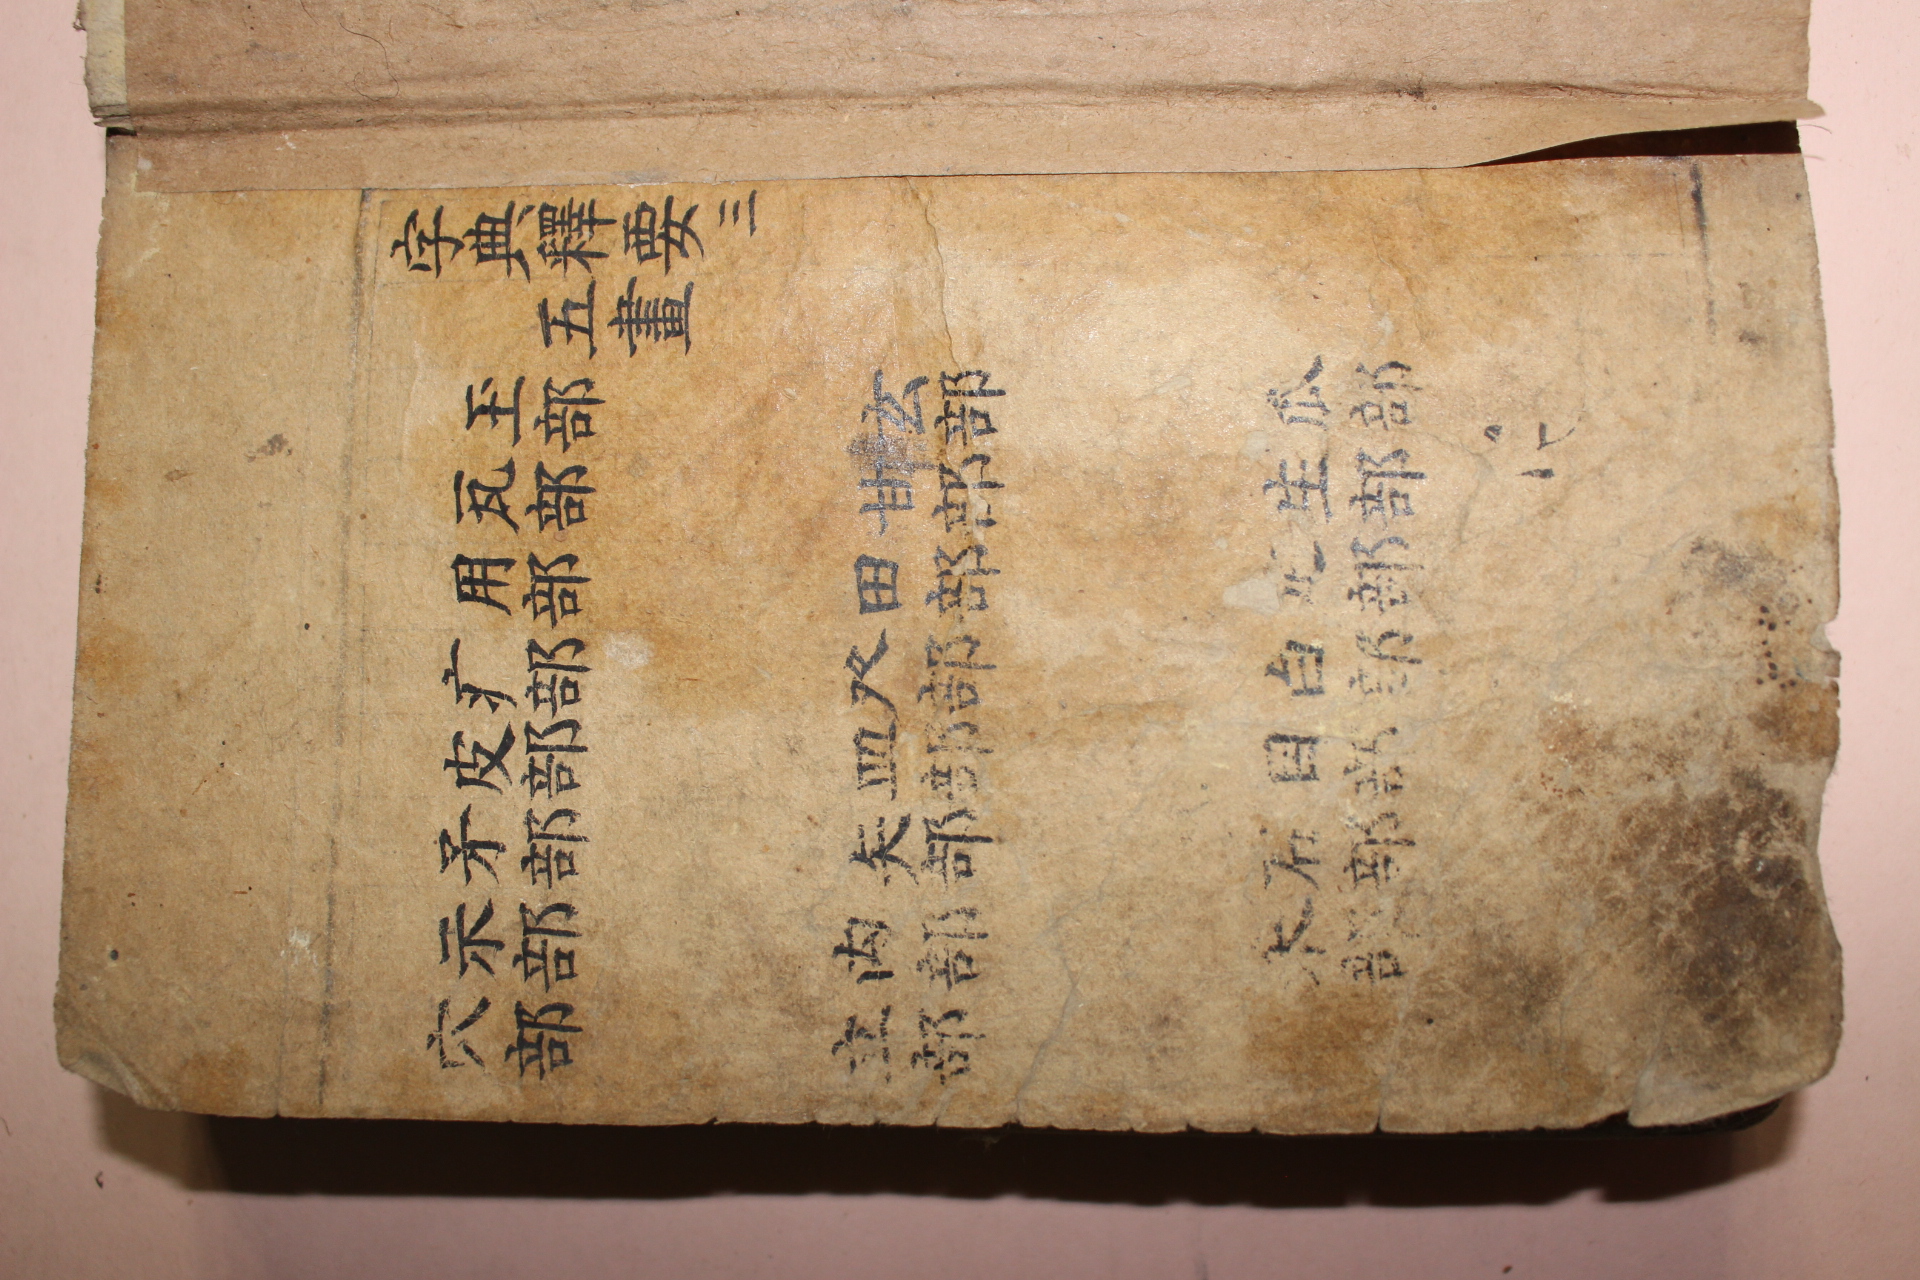 字典釋要三
五畫
玉部 玄部 瓜部
瓦部 甘部 生部
用部 田部 部
疒部 癶部 白部
皮部 皿部 目部
矛部 矢部 石部
示部 禸部 禾部
穴部 立部